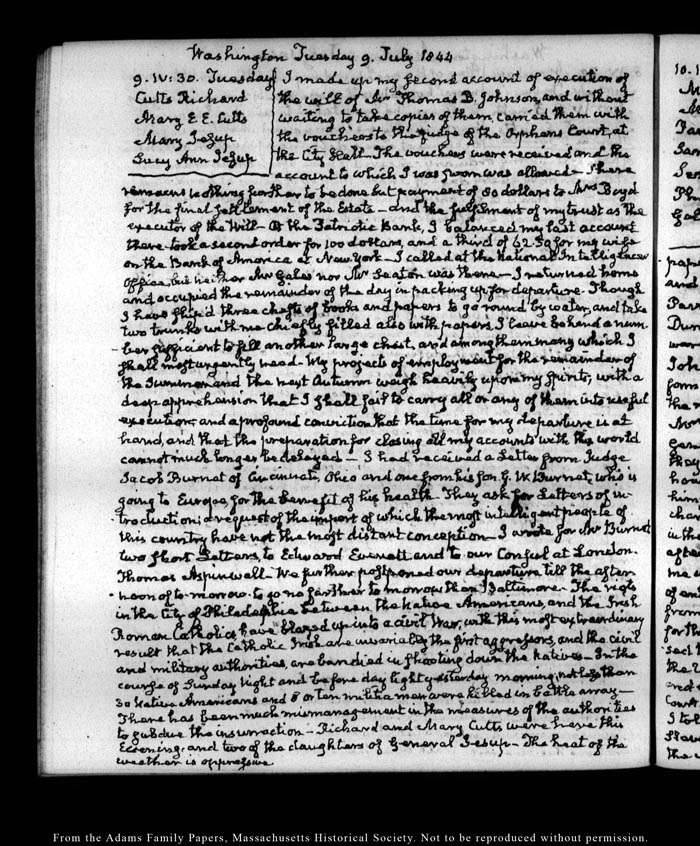 Washington Tuesday 9. July 1844
9. IV:30. Tuesday
Cutts Richard
Mary E. E. Cutts
Mary Jesup
Lucy Ann Jesup
I made up my second account of execution of
the will of Mr Thomas B. Johnson, and without
waiting to take copies of them, carried them with
the vouchers to the judge of the Orphans Court, at
the City Hall. The vouchers were received and the
account to which I was sworn was allowed — There
remains nothing further to be done but payment of 80 dollars to Mrs Boyd
for the final settlement of the Estate — and the fulfilment of my trust as the
executor of the Will — At the Patriotic Bank, I balanced my last account
there took a second order for 100 dollars, and a third of 62.50 for my wife
on the Bank of America at New York — I called at the National Intelligencer
Office, but neither Mr Gales nor Mr Seaton was there — I returned home
and occupied the remainder of the day in packing up for departure. Though
I have ship'd three chests of books and papers to go round by water, and take
two trunks with me chiefly filled also with papers, I leave behind a num
ber sufficient to fill another large chest, and among them many which I
shall most urgently need — My projects of employment for the remainder of
the Summer and the next Autumn weigh heavily upon my spirits, with a
deep apprehension that I shall fail to carry all or any of them into useful
execution; and a profound conviction that the time for my departure is at
hand, and that the preparation for closing all my accounts with the world
cannot much longer be delayed — I had received a Letter from Judge
Jacob Burnet of Cincinnati, Ohio and one from his son G. W. Burnet, who is
going to Europe, for the benefit of his health. They ask for Letters of in
troduction; a request of the import of which the most intelligent people of
this country have not the most distant conception — I wrote for Mr Burnet
two short Letters, to Edward Everett and to our Consul at London.
Thomas Aspinwall — We further postponed our departure till the after
noon of to-morrow. to go no farther to morrow than Baltimore. The riots
in the City of Philadelphia between the Native Americans, and the Irish
Roman Catholics, have blazed up into a civil War, with this most extraordinary
result that the Catholic Irish are invariably the first aggressors, and the civil
and military authorities, are bandied in shooting down the Natives — In the
course of Sunday Night and before day light yesterday morning, not less than
30 Native Americans and 8 or ten militia men were killed in battle array —
There has been much mismanagement in the measures of the authorities
to subdue the insurrection — Richard and Mary Cutts were here this
Evening; and two of the daughters of General Jesup — The heat of the
weather is oppressive.
From the Adams Family Papers, Massachusetts Historical Society. Not to be reproduced without permission.